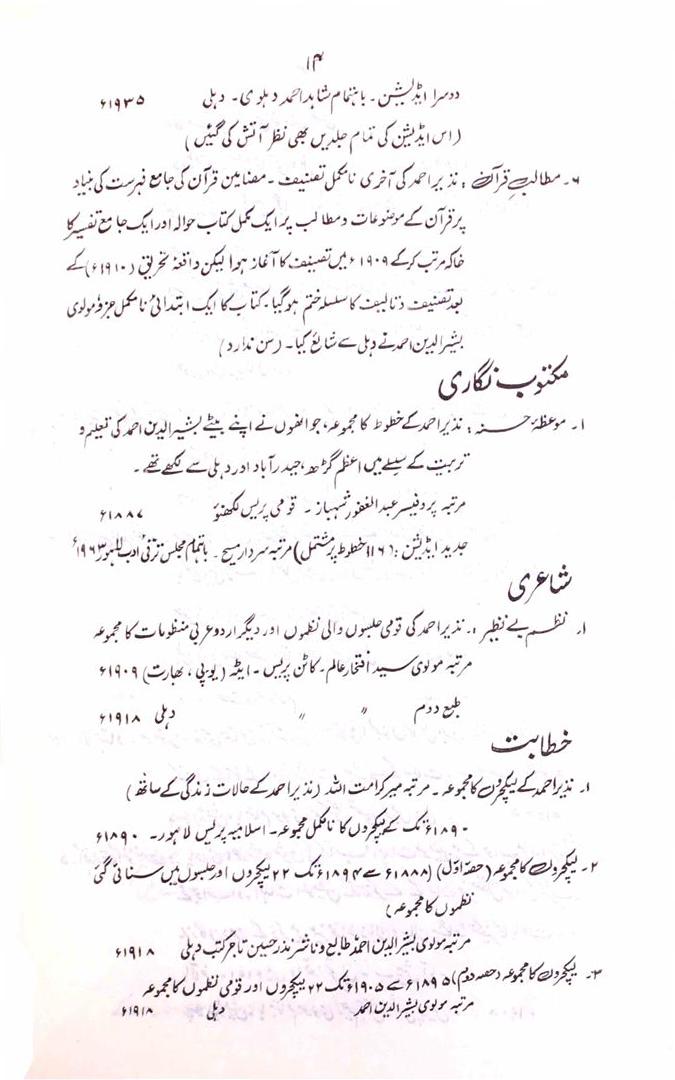 ۱۴
دوسرا ایڈیشن ۔ باہتمام شاہد احمد دہلوی ۔ دہلی ۱۹۳۵ء
(اس ایڈیشن کی تمام جلدیں بھی نظر آتش کی گئیں)
۶۔ مطالبِ قرآن : نذیر احمد کی آخری نامکمل تصنیف ۔ مضامین قرآن کی جامع فہرست کی بنیاد
پر قرآن کے موضوعات و مطالب پر ایک مکمل کتاب حوالہ اور ایک جامع تفسیر کا
خاکہ مرتب کر کے ۱۹۰۹ء میں تصنیف کا آغاز ہوا لیکن واقعۂ تحریق (۱۹۱۰ء) کے
بعد تصنیف و تالیف کا سلسلہ ختم ہو گیا ۔ کتاب کا ایک ابتدائی نامکمل جزو مولوی
بشیر الدین احمد نے دہلی سے شایع کیا ۔ (سن ندارد)
مکتوب نگاری
۱۔ موعظۂ حسنہ : نذیر احمد کے خطوط کا مجموعہ، جو انھوں نے اپنے بیٹے بشیر الدین احمد کی تعلیم و
تربیت کے سلسلے میں اعظم گڑھ، حیدر آباد اور دہلی سے لکھے تھے ۔
مرتبہ پروفیسر عبد الغفور شہباز ۔ قومی پریس لکھنؤ ۱۸۸۷ء
جدید ایڈیشن : (۱۱۶ خطوط پر مشتمل) مرتبہ سردار مسیح ۔ باہتمام مجلس ترقی ادب لاہور ۱۹۶۳ء
شاعری
۱۔ نظم بے نظیر : نذیر احمد کی قومی جلسوں والی نظموں اور دیگر اردو عربی منظومات کا مجموعہ
مرتبہ مولوی سید افتخار عالم ۔ کاٹن پریس ۔ ایٹہ (یو پی ، بھارت) ۱۹۰۹ء
طبع دوم " " دہلی ۱۹۱۸ء
خطابت
۱۔ نذیر احمد کے لیکچروں کا مجموعہ ۔ مرتبہ میر کرامت اللہ (نذیر احمد کے حالات زندگی کے ساتھ)
۱۸۹۰ء تک کے لیکچروں کا نامکمل مجموعہ ۔ اسلامیہ پریس لاہور ۔ ۱۸۹۰ء
۲۔ لیکچروں کا مجموعہ (حصّہ اوّل) (۱۸۸۸ء سے ۱۸۹۴ء تک ۲۲ لیکچروں اور جلسوں میں سنائی گئی
نظموں کا مجموعہ)
مرتبہ مولوی بشیر الدین احمد، طابع و ناشر نذر حسین تاجر کتب دہلی ۱۹۱۸ء
۳۔ لیکچروں کا مجموعہ (حصہ دوم) ۱۸۹۵ء سے ۱۹۰۵ء تک ۲۲ لیکچروں اور قومی نظموں کا مجموعہ
مرتبہ مولوی بشیر الدین احمد دہلی ۱۹۱۸ء